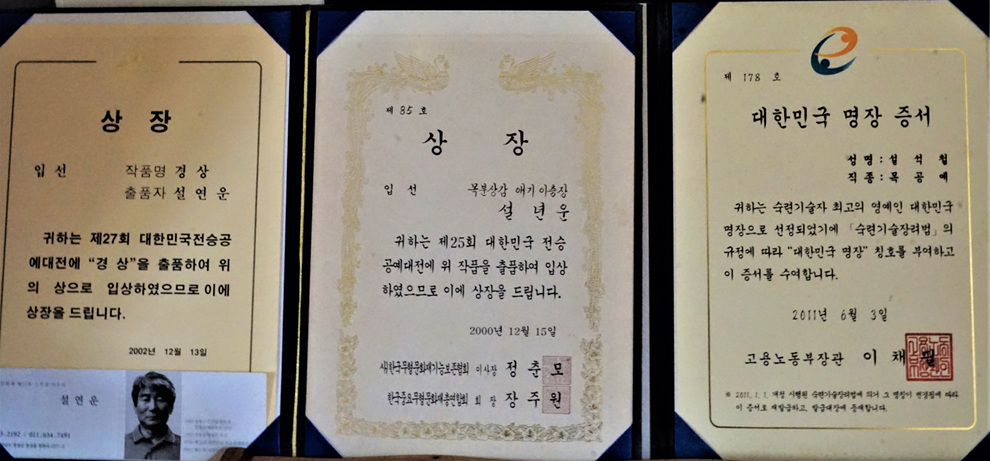 상 장
입 선
작품명 경 상
출품자 설 연 운
귀하는 제27회 대한민국전승공
예대전에 "경 상"을 출품하여 위
의 상으로 입상하였으므로 이에
상장을 드립니다.
2002년 12월 13일
설 연 운
3-2192 / 011.634.7491
제 85 호
상 장
입 선
목분상감 애기이층장
설 년 운
귀하는 제25회 대한민국 전승
공예대전에 위 작품을 출품하여 입상
하였으므로 이에 상장을 드립니다.
2000년 12월 15일
한국무형문화재기능보존협회 이사장 정 춘 모
한국중요무형문화재총연합회 회 장 장 주 원
제 178 호
대한민국 명장 증서
성명 : 설 석 철
직종 : 목 공 예
귀하는 숙련기술자 최고의 영예인 대한민국
명장으로 선정되었기에 「숙련기술장려법」의
규정에 따라 "대한민국 명장" 칭호를 부여하고
이 증서를 수여합니다.
2011년 6월 3일
고용노동부장관 이 채 필
※ 2011. 1. 1. 개정 시행된 숙련기술장려법에 의거 그 명칭이 변경됨에 따라
이 증서로 재발급하고, 발급대장에 등재합니다.